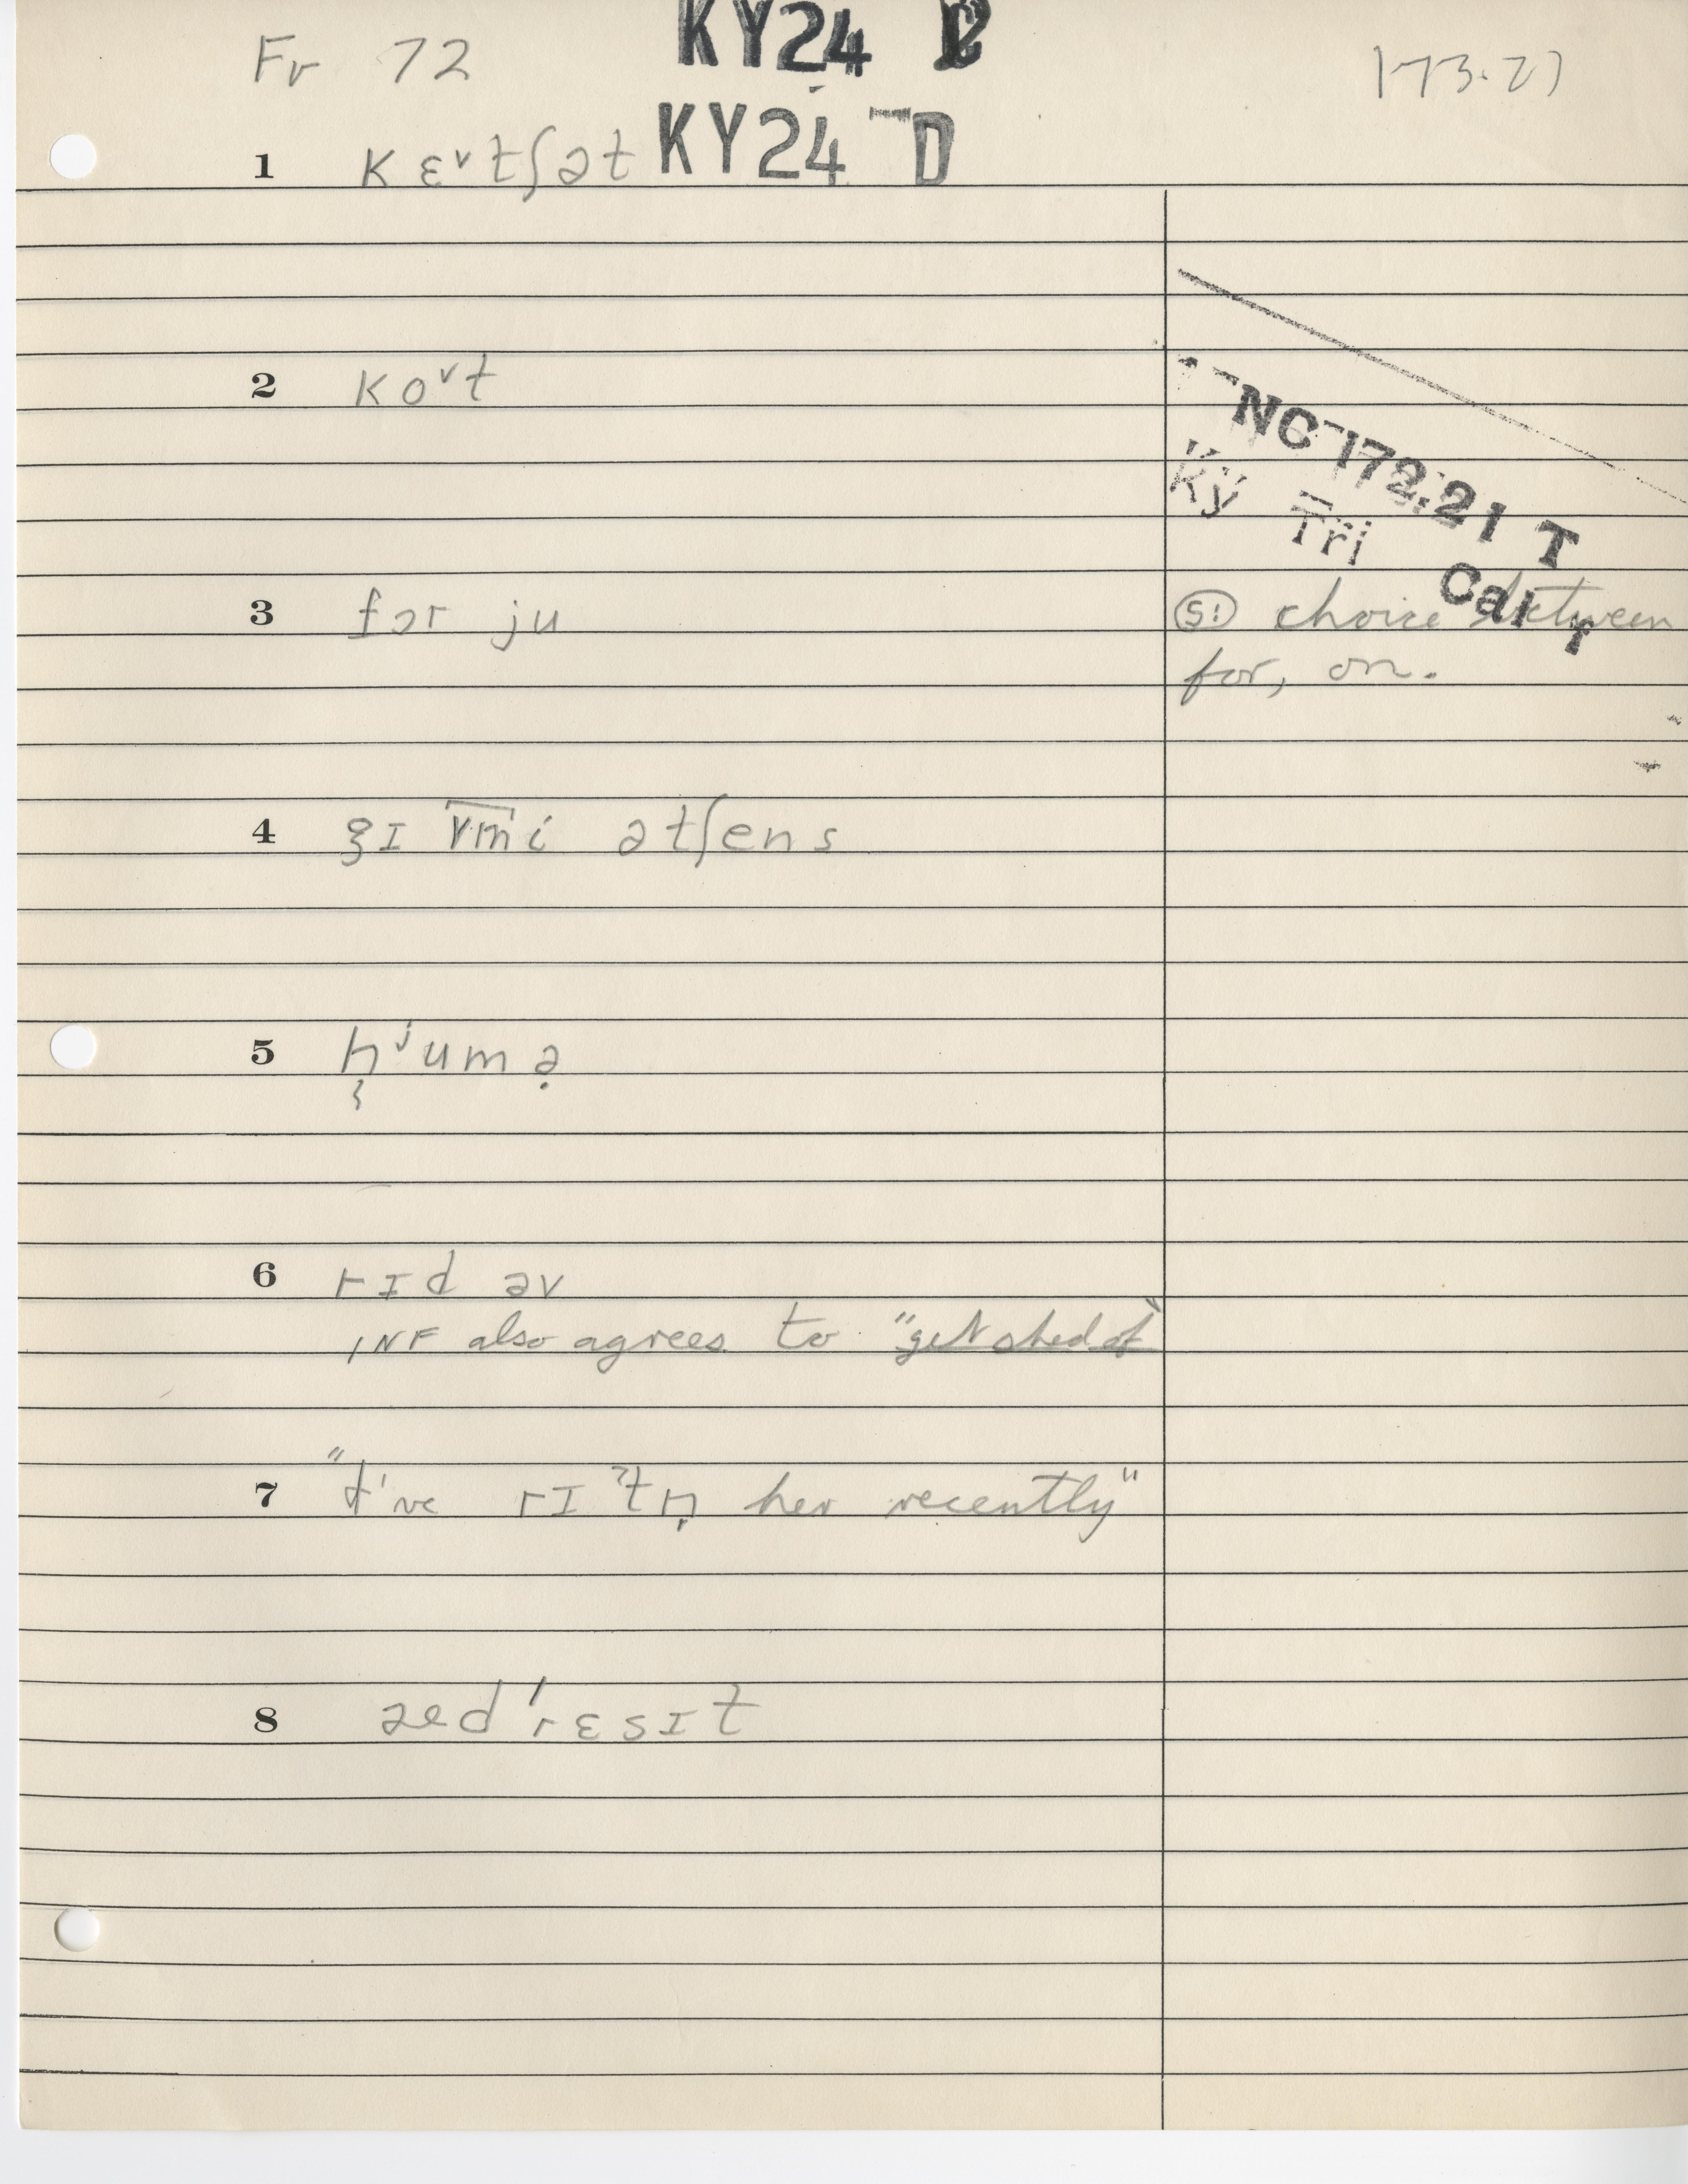 Fr 72 KY24 173.21
1 kɛ˅tʃət KY24 D
2 ko˅t
NC 172.21 T
Ky Tri Cal r
3 fɔr ju S! choice between
for, on.
4 ətʃens
5
6 rɪd əv
INF also agrees to "get shed of"
7 "I've rɪˀtn̩ her recently"
8 æd'rɛsɪt